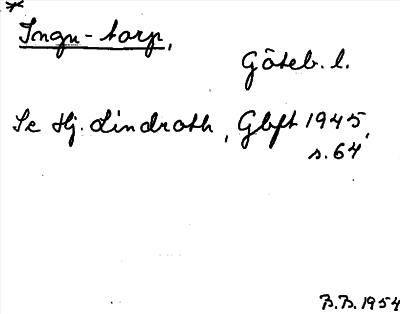 *
Ingu-torp,
Göteb. l.
Se Hj. Lindroth, Gbft 1945,
s. 64
B.B. 1954